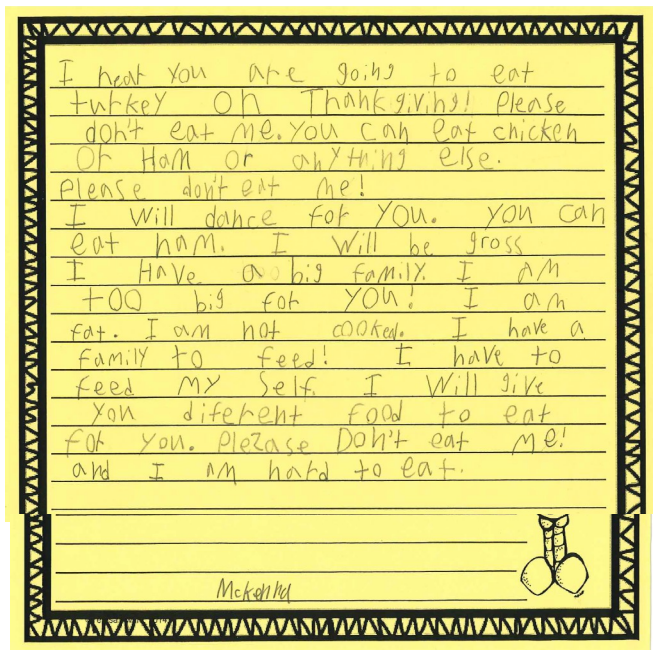 I hear you are going to eat
turkey on Thanksgiving! Please
don't eat me. You can eat chicken
or Ham or anything else.
Please don't eat me!
I will dance for you. you can
eat ham. I will be gross
I Have a big family. I am
too big for you! I am
fat. I am not cooked. I have a
family to feed! I have to
feed my self. I will give
you diferent food to eat
for you. Plezase Don't eat me!
and I am hard to eat.
Mckenna